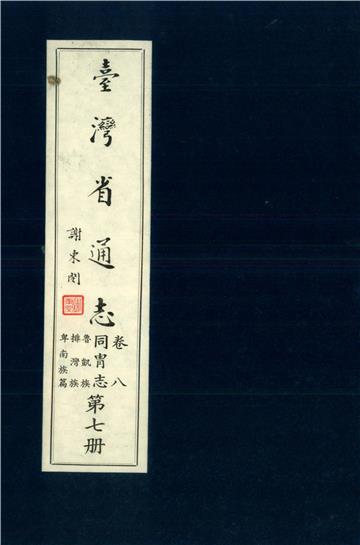 臺灣省通志
謝東閔
卷八
同冑志
魯凱族
排灣族
卑南族篇
第七册